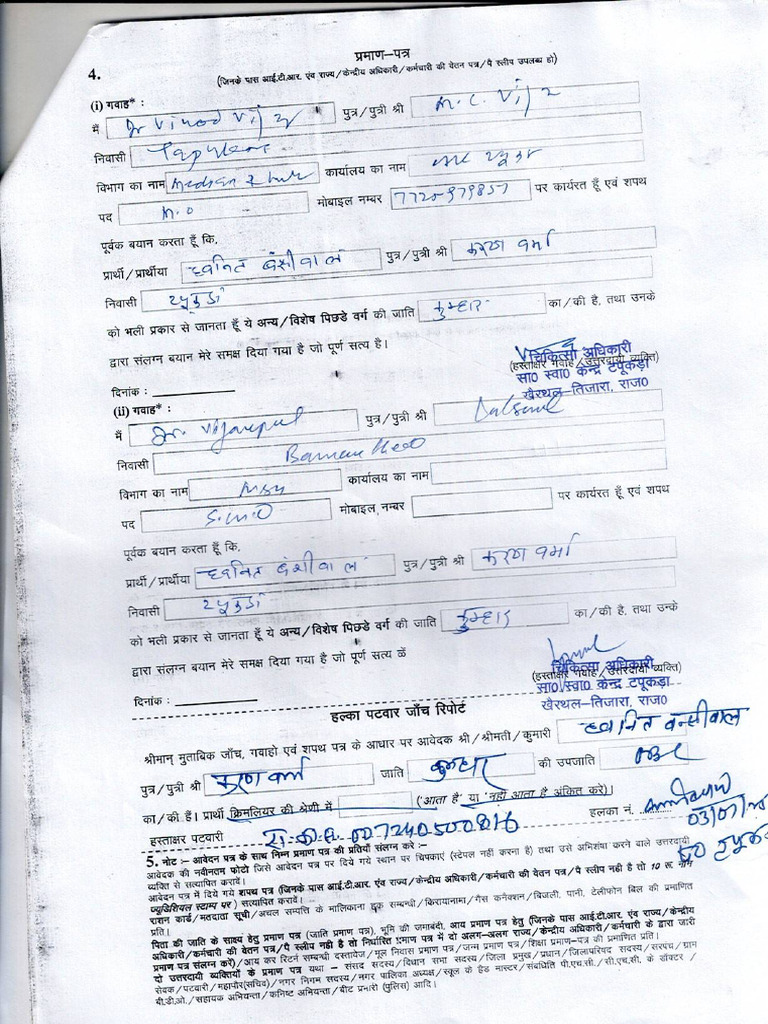 प्रमाण-पत्र
4. (जिनके पास आई.टी.आर. एंव राज्य/केन्द्रीय अधिकारी/कर्मचारी की वेतन पत्र/पै स्लीप उपलब्ध हो)
(i) गवाह* :
मैं Dr Vinod Vijay पुत्र/पुत्री श्री M. C. Vijay
निवासी Tapukara
विभाग का नाम कार्यालय का नाम
पद M.O मोबाइल नम्बर पर कार्यरत हूँ एवं शपथ
पूर्वक बयान करता हूँ कि,
प्रार्थी/प्रार्थीया ध्वनित बंसीवाल पुत्र/पुत्री श्री करण वर्मा
निवासी टपूकडा
को भली प्रकार से जानता हूँ ये अन्य/विशेष पिछडे वर्ग की जाति कुम्हार का/की है, तथा उनके
द्वारा संलग्न बयान मेरे समक्ष दिया गया है जो पूर्ण सत्य है।
चिकित्सा अधिकारी
(हस्ताक्षर गवाह/उत्तरदायी व्यक्ति)
सा0 स्वा0 केन्द्र टपूकड़ा
दिनांक :
खैरथल-तिजारा, राज0
(ii) गवाह* :
मैं Dr. पुत्र/पुत्री श्री
निवासी
विभाग का नाम कार्यालय का नाम
पद S.M.O मोबाईल नम्बर पर कार्यरत हूँ एवं शपथ
पूर्वक बयान करता हूँ कि,
प्रार्थी/प्रार्थीया ध्वनित बंसीवाल पुत्र/पुत्री श्री करण वर्मा
निवासी टपूकडा
को भली प्रकार से जानता हूँ ये अन्य/विशेष पिछडे वर्ग की जाति कुम्हार का/की है, तथा उनके
द्वारा संलग्न बयान मेरे समक्ष दिया गया है जो पूर्ण सत्य ळें
चिकित्सा अधिकारी
(हस्ताक्षर गवाह/उत्तरदायी व्यक्ति)
सा0 स्वा0 केन्द्र टपूकड़ा
दिनांक :
खैरथल-तिजारा, राज0
हल्का पटवार जाँच रिपोर्ट
श्रीमान् मुताबिक जाँच, गवाहो एवं शपथ पत्र के आधार पर आवेदक श्री/श्रीमती/कुमारी ध्वनित बन्सीवाल
पुत्र/पुत्री श्री करण वर्मा जाति कुम्हार की उपजाति OBC
का/की हैं। प्रार्थी क्रिमलियर की श्रेणी में ('आता है' या 'नहीं आता है' अंकित करे)।
हलका नं.
हस्ताक्षर पटवारी
5. नोट :- आवेदन पत्र के साथ निम्न प्रमाण पत्र की प्रतियाँ संलग्न करे :-
आवेदक की नवीनतम फोटो जिसे आवेदन पत्र पर दिये गये स्थान पर चिपकाएं (स्टेपल नहीं करना है) तथा उसे अभिशंषा करने वाले उत्तरदायी
व्यक्ति से सत्यापित करावें।
आवेदन पत्र में दिये गये शपथ पत्र (जिनके पास आई.टी.आर. एंव राज्य/केन्द्रीय अधिकारी/कर्मचारी की वेतन पत्र/पै स्लीप नही है तो 10 रू.
ज्युडिशियल स्टाम्प पर) सत्यापित करावें।
राशन कार्ड/मतदाता सूची/अचल सम्पत्ति के मालिकाना हक़ सम्बन्धी/किरायानामा/गैस कनैक्शन/बिजली, पानी, टेलीफोन बिल की प्रमाणित
प्रति।
पिता की जाति के साक्ष्य हेतु प्रमाण पत्र (जाति प्रमाण पत्र), भूमि की जमाबंदी, आय प्रमाण पत्र हेतु (जिनके पास आई.टी.आर. एंव राज्य/केन्द्रीय
अधिकारी/कर्मचारी की वेतन पत्र/पै स्लीप नही है तो निर्धारित प्रमाण पत्र में दो अलग-अलग राज्य/केन्द्रीय अधिकारी/कर्मचारी के द्वारा जारी
प्रमाण पत्र संलग्न करें)/आय कर रिटर्न सम्बन्धी दस्तावेज/मूल निवास प्रमाण पत्र/जन्म प्रमाण पत्र/शिक्षा प्रमाण-पत्र की प्रमाणित प्रति।
दो उत्तरदायी व्यक्तियों के प्रमाण पत्र यथा - संसद सदस्य/विधान सभा सदस्य/जिला प्रमुख/प्रधान/जिलापरिषद सदस्य/सरपंच/ग्राम
सेवक/पटवारी/महापोर(सचिव)/नगर निगम सदस्य/नगर पालिका अध्यक्ष/स्कूल के हैड मास्टर/संबधिति पी.एच.सी./सी.एच.सी. के डॉक्टर/
बी.डी.ओ./सहायक अभियन्ता/कनिष्ट अभियन्ता/बीट प्रभारी (पुलिस) आदि।